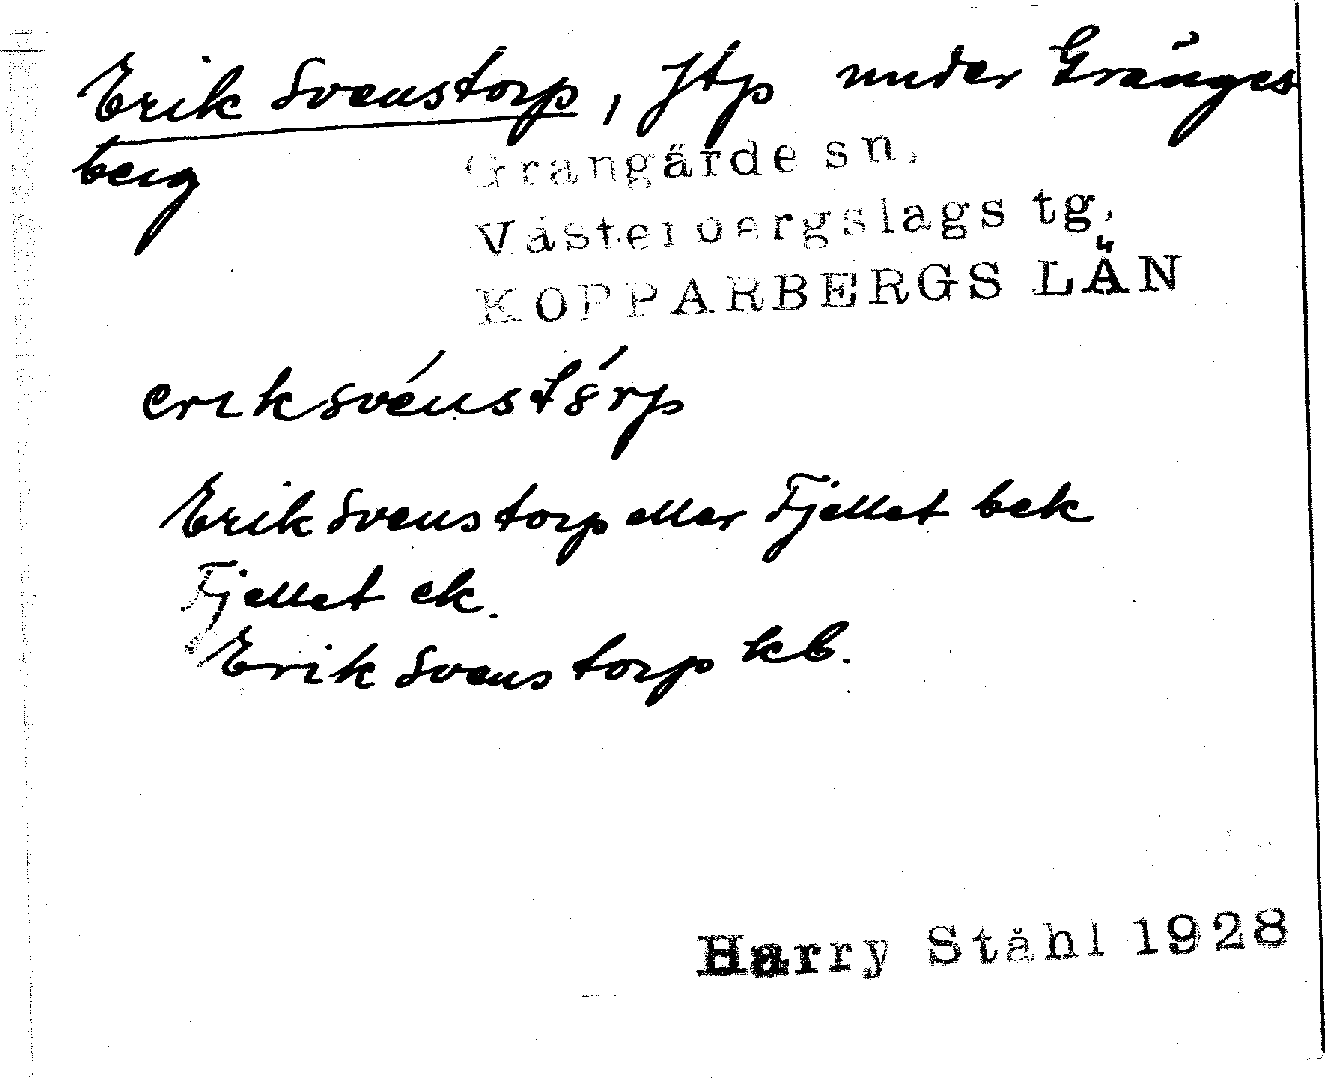 Erik Svenstorp, Jtp under Gränges
berg
Grangärde sn.
Västerbergslags tg.
KOPPARBERGS LÄN
eriksvéns tórp
Erik Svenstorp eller Fjellet bek
Fjellet ek.
Erik Svenstorp kb.
Harry Ståhl 1928